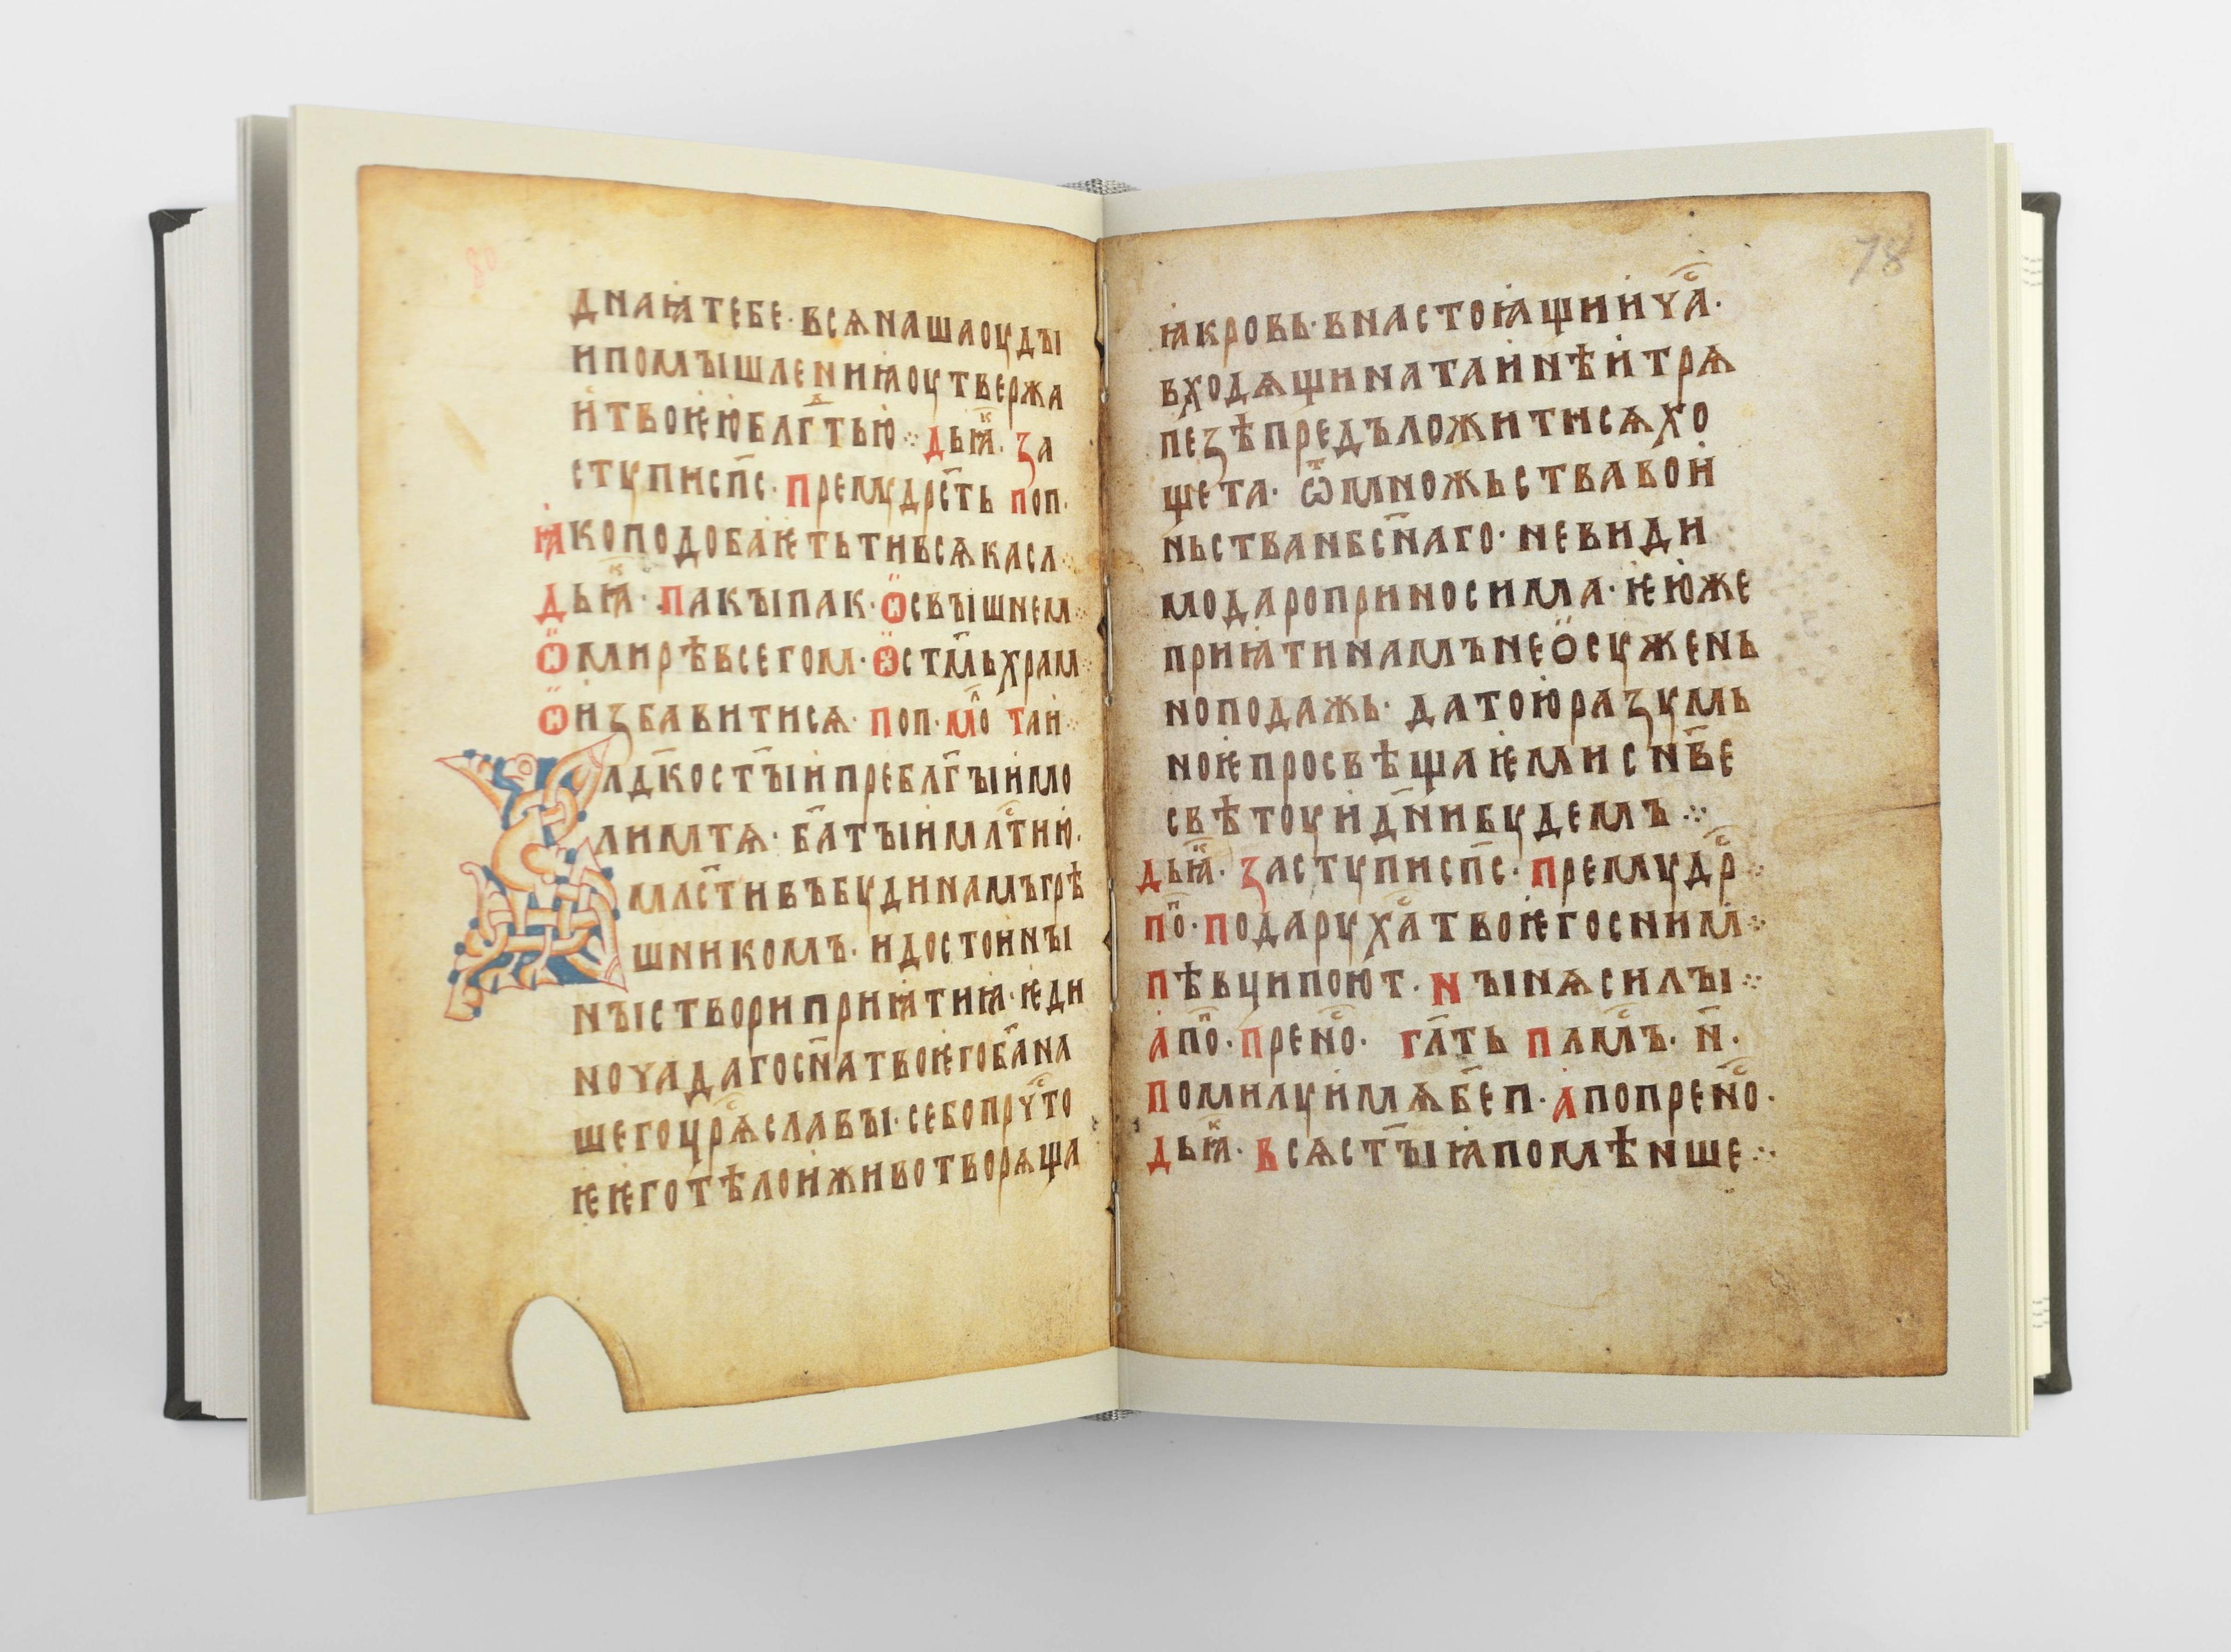 80
днаꙗтебе·всѧнашаоуды
ипомышлениꙗоутвержа
ӥтвоѥюблг҇тью⁘дьꙗ҇к·за
ступиспс҃·премудрс҃ть поп·
ꙗкоподобаѥтьтивсѧкасл⁘
дьꙗ҇к·пакыпак·ѺсвъІшнем⁘
Ѻмирѣвсегом·Ѻстм҃ьхрам⁘
Ѻизбавитисѧ·поп·мо҇л таи⁘
Влдк҃остъІ҃ипреблг҃ъІимо
лимтѧ·ба҃тъІимлс҇тию·
млс҃тивъбудинамъгрѣ
шникомъ·идостоинъІ
нъІствориприꙗтиꙗ·ѥди
ночадагосн҃атвоѥгоба҃на
шегоцрс҇ѧславъІ·себопрчс҇то
ѥѥготѣлоиживотворѧща
78
ꙗкровь·внастоꙗщиичс҇а·
входѧщинатаинѣитрѧ
пезѣпредъложитисѧхо
щета·ѿмножьствавои
ньстванбсн҃аго·невиди
модароприносима·ѥюже
приꙗтинамънеѻсужень
ноподажь·датоюразумь
ноѥпросвѣщаѥмиснв҃е
свѣтоуидн҃ибудемъ⁘
дьꙗ҇к·заступиспс҃·премудрс҇⁘
по҇п·подарухс҇атвоѥгосним⁘
пѣвципоют·нъІнѧсилъІ⁘
апо҇п·пренс҇о· гл҃ть палс҇мъ·н҃·
помилуимѧбе҃п·апопренс҇о·
дьꙗ҇к·всѧстъІ҃ꙗпомѣнше⁘